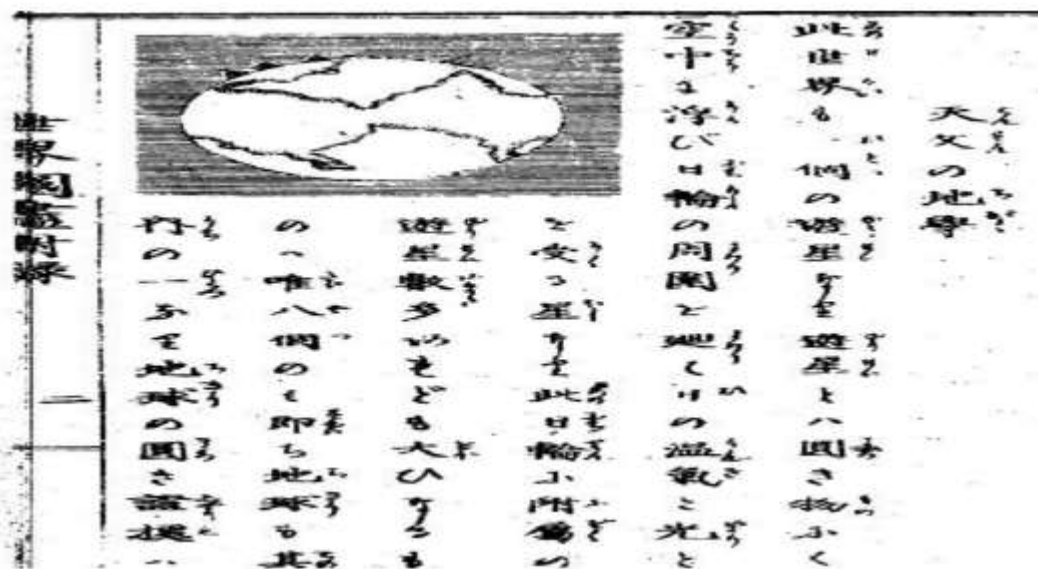 天文の地學
此世界も一個の遊星なり遊星とハ圓き物にて
空中に浮び日輪の周圍を廻て日の温氣と光と
を受る星なり此日輪に附屬の
遊星數多あれども大ひなるも
のハ唯八個のて即ち地球も其
内の一なり地球の圓き證據ハ
世界國盡附録